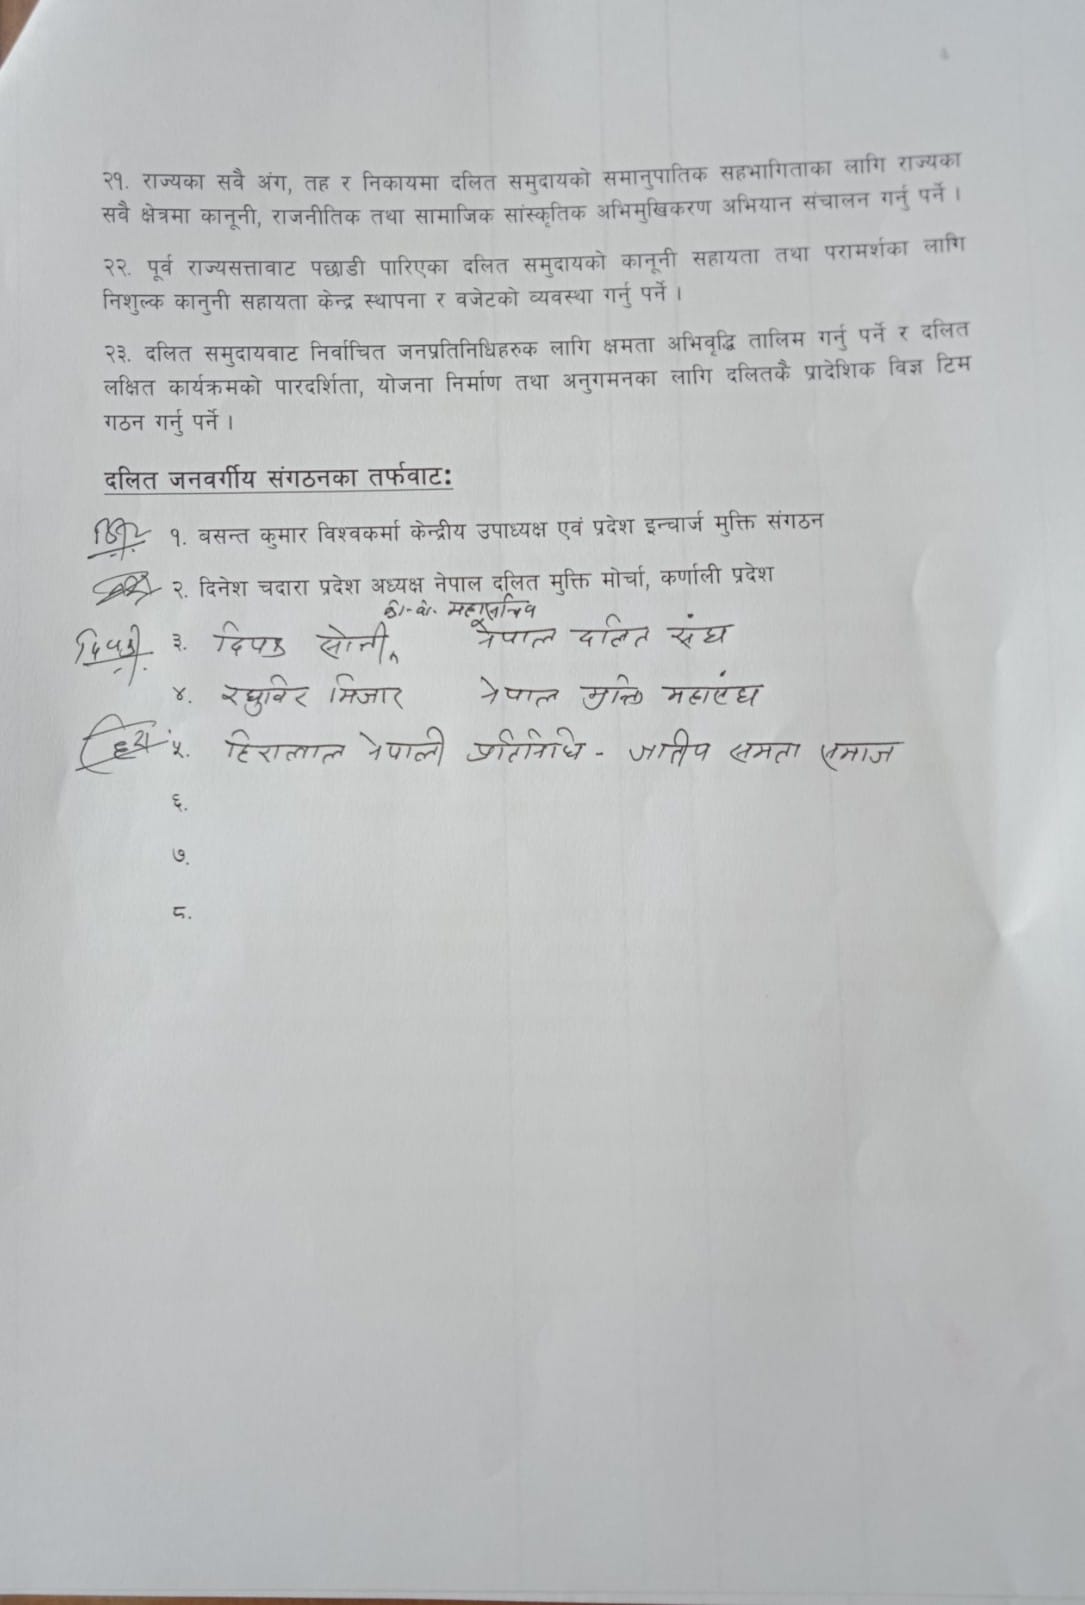 २१. राज्यका सवै अंग, तह र निकायमा दलित समुदायको समानुपातिक सहभागिताका लागि राज्यका
सवै क्षेत्रमा कानूनी, राजनीतिक तथा सामाजिक सांस्कृतिक अभिमुखिकरण अभियान संचालन गर्नु पर्ने ।
२२. पूर्व राज्यसत्तावाट पछाडी पारिएका दलित समुदायको कानूनी सहायता तथा परामर्शका लागि
निशुल्क कानुनी सहायता केन्द्र स्थापना र वजेटको व्यवस्था गर्नु पर्ने ।
२३. दलित समुदायवाट निर्वाचित जनप्रतिनिधिहरुक लागि क्षमता अभिवृद्धि तालिम गर्नु पर्ने र दलित
लक्षित कार्यक्रमको पारदर्शिता, योजना निर्माण तथा अनुगमनका लागि दलितकै प्रादेशिक विज्ञ टिम
गठन गर्नु पर्ने ।
दलित जनवर्गीय संगठनका तर्फवाट:
१. बसन्त कुमार विश्वकर्मा केन्द्रीय उपाध्यक्ष एवं प्रदेश इन्चार्ज मुक्ति संगठन
२. दिनेश चदारा प्रदेश अध्यक्ष नेपाल दलित मुक्ति मोर्चा, कर्णाली प्रदेश
महासचिव
३. दिपक सोनी, नेपाल दलित संघ
४. रघुविर मिजार नेपाल मुक्ति महासंघ
५. हिरालाल नेपाली प्रतिनिधि - जातीय समता समाज
६.
७.
८.